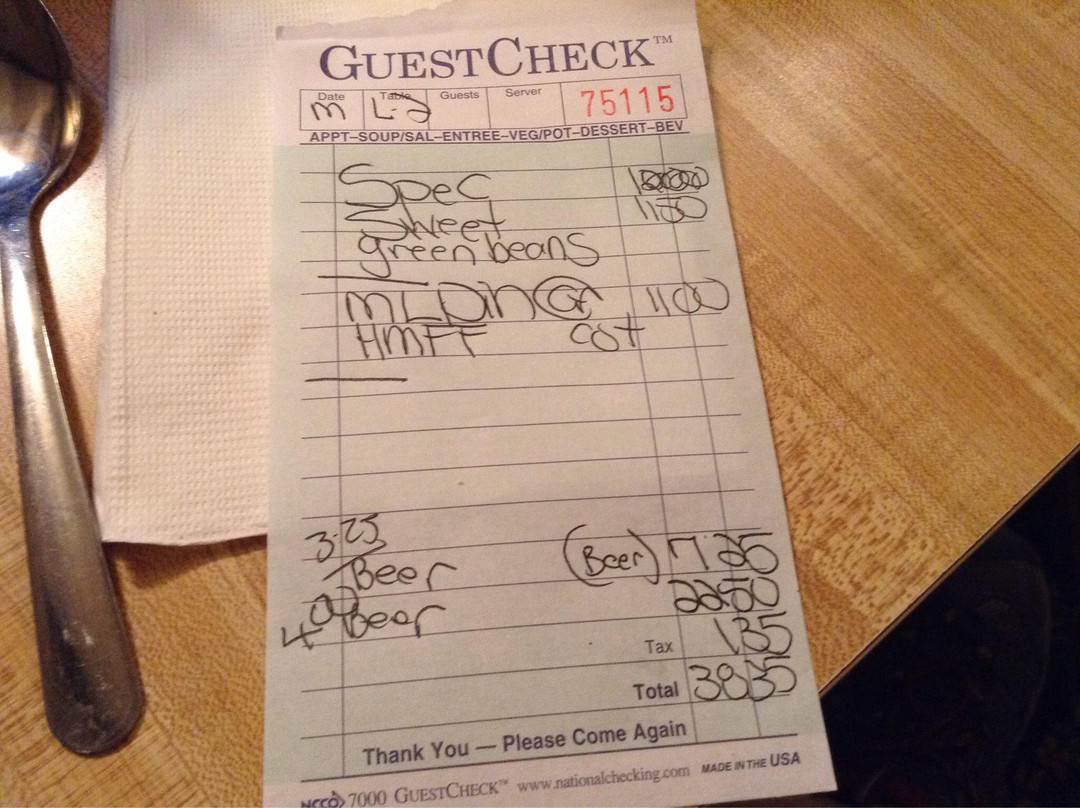 GUESTCHECK™
Date Table Guests Server
M L-2 75115
APPT–SOUP/SAL–ENTREE–VEG/POT–DESSERT–BEV
Spec
Sweet 1150
green beans
ML Din GR 1100
HMFF cot
3.25
Beer (Beer) 7.25
4.00 Beer 22.50
Tax 1.35
Total 38.35
Thank You — Please Come Again
NCCO 7000 GUESTCHECK™ www.nationalchecking.com MADE IN THE USA